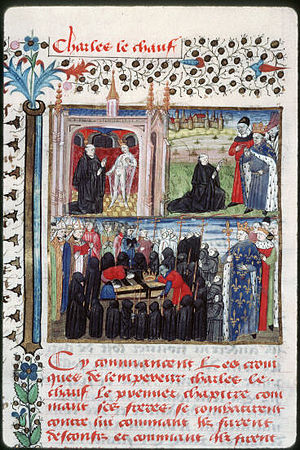 Charles le chauf
Cy commancent les croni
ques de lempereur charles le
chauf Le premier chapitre com
mant ses freres se combatirent
contre lui commant ilz furent
desconfis et commant ilz firent